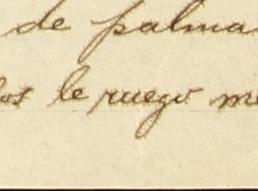 de palma
los le ruego me